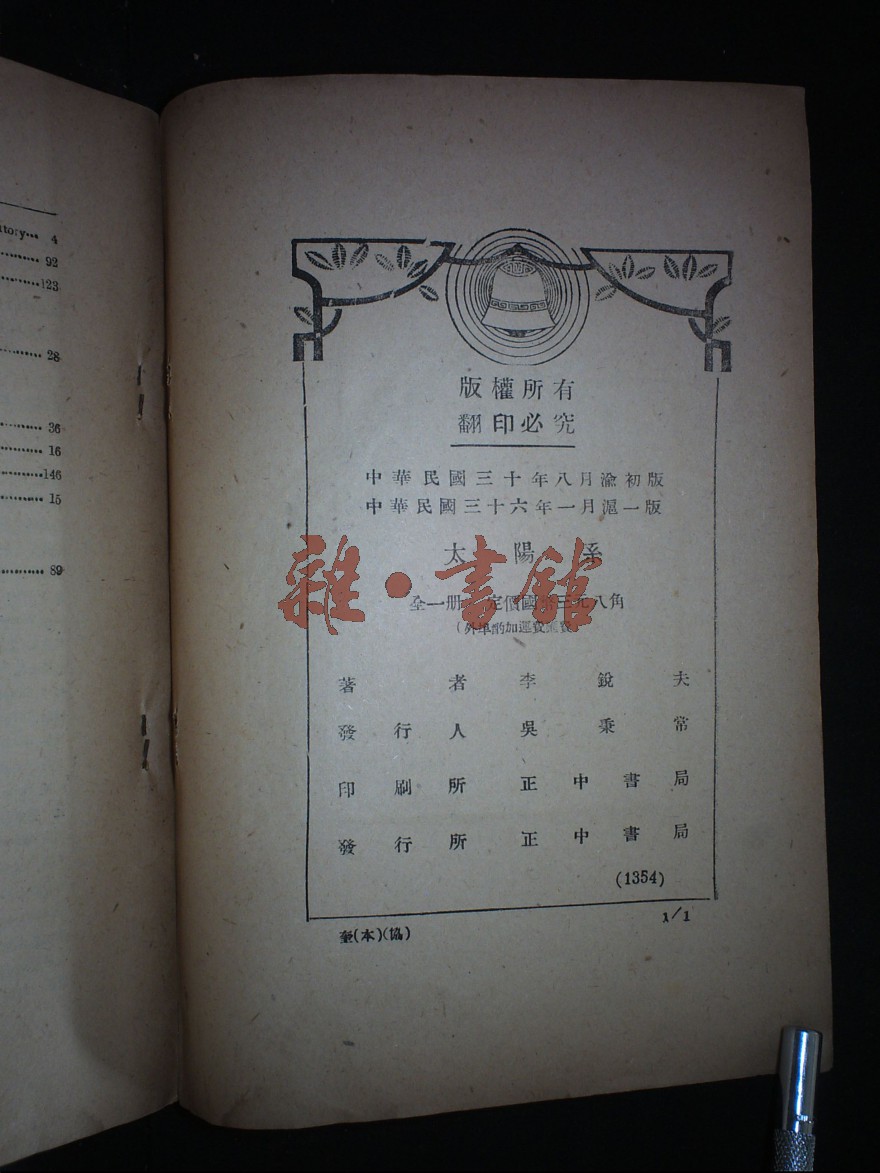 itory... 4
92
123
28
36
16
146
15
89
版權所有
翻印必究
中華民國三十年八月渝初版
中華民國三十六年一月滬一版
太陽系
雜·書館
全一册 定價國幣三元八角
(外埠酌加運費滙費)
著者李銳夫
發行人吳秉常
印刷所正中書局
發行所正中書局
(1354)
1/1
(本)(協)